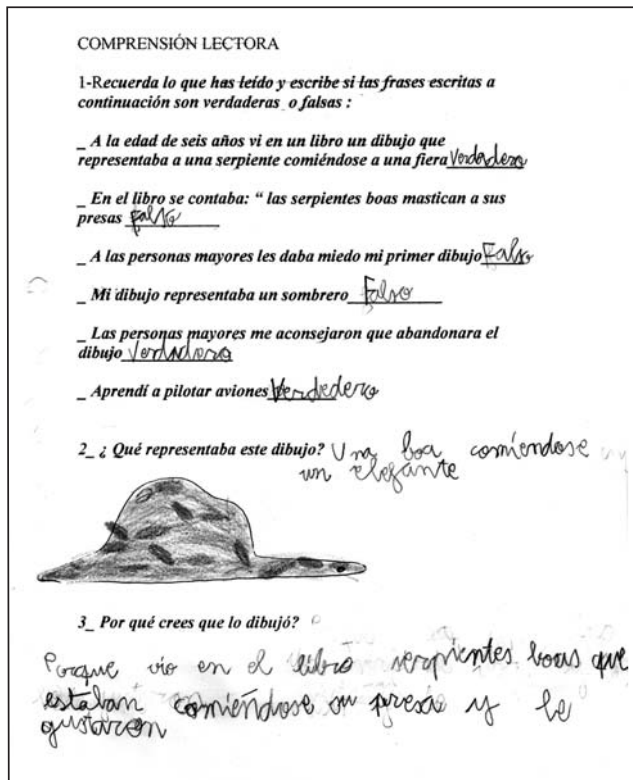 COMPRENSIÓN LECTORA
1-Recuerda lo que has leído y escribe si las frases escritas a
continuación son verdaderas o falsas :
_ A la edad de seis años vi en un libro un dibujo que
representaba a una serpiente comiéndose a una fiera Verdadero
_ En el libro se contaba: “ las serpientes boas mastican a sus
presas falso
_ A las personas mayores les daba miedo mi primer dibujo Falso
_ Mi dibujo representaba un sombrero Falso
_ Las personas mayores me aconsejaron que abandonara el
dibujo Verdadero
_ Aprendí a pilotar aviones Verdedero
2_ ¿ Qué representaba este dibujo? Una boa comiendose
un elefante
3_ Por qué crees que lo dibujó?
Porque vio en el libro serpientes boas que
estaban comiéndose su presa y le
gustaron